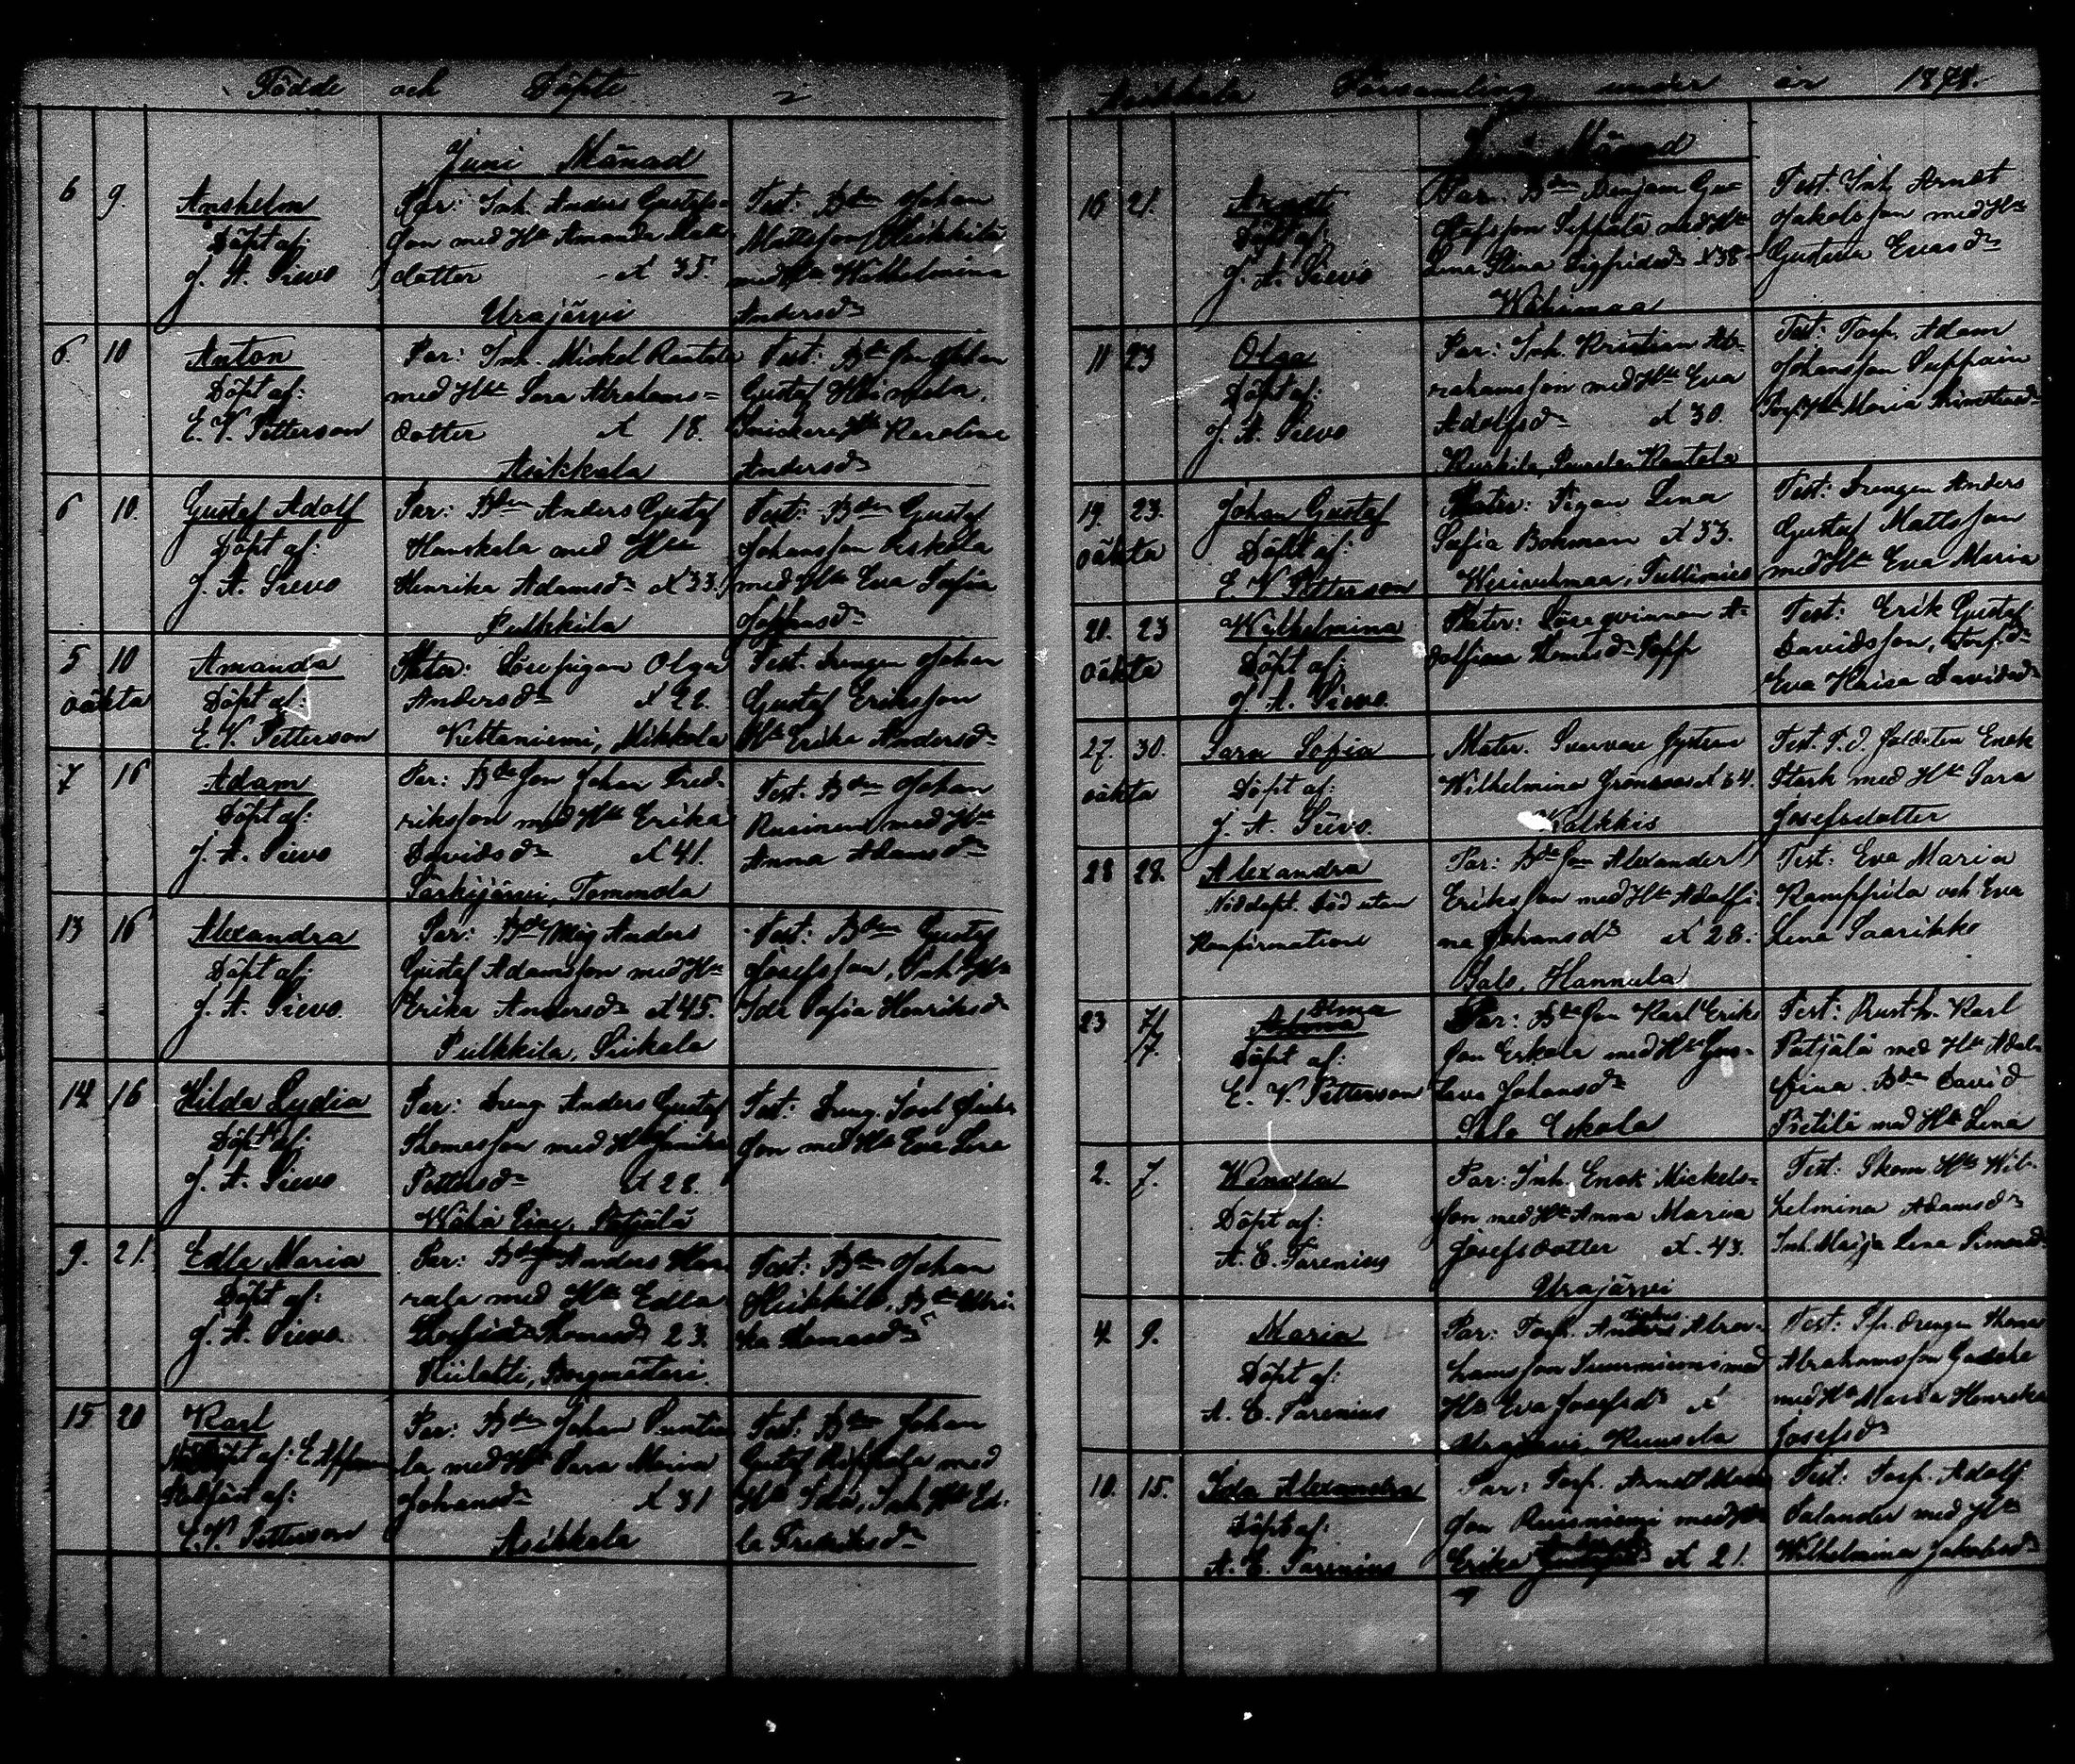 Födde och Döpte i Asikkala Församling under år 1878.
Juni Månad
6 9. Anskelm
Döpt af:
J. A. Sievo
Par: Inh. Anders Gustafs-
son med Hu Amanda
dotter Ål 35.
Urajärvi
Test: Bden Johan
Mattsson Heikkilä
med Hu Wilhelmina
Andersdr
6. 10 Anton
Döpt af:
E. V. Petterson
Par: Inh. Mickel Rantala
med Hu Sara Abrahams=
dotter Ål 18.
Asikkala
Test: Bdeson Johan
Gustaf
Snickare Hu Karolina
Andersdr
6 10. Gustaf Adolf
Döpt af:
J. A. Sievo
Par: Bden Anders Gustaf
Hanskala med Hu
Henrika Adamsdr Ål 33.
Pulkkila
Test: Bden Gustaf
Johansson Eskola
med Hu Eva Sofia
Johansdr
5 10 Amanda
oäkta Döpt af:
E. V. Petterson
Mater: Lösepigan Olga
Andersdr Ål 22.
Kettaniemi, Mikkola
Test. Drengen Johan
Gustaf Eriksson
Hu Erika Andersdr
7 16 Adam
Döpt af:
J. A. Sievo
Par: Bdeson Johan Fred-
riksson med Hu Erika
Davidsdr Ål 41.
Särkijärvi, Tommola
Test. Bden Johan
Rusinen med Hu
Anna Adamsdr
13 16 Alexandra
Döpt af:
J. A. Sievo.
Par: Bde Måg Anders
Gustaf Adamsson med Hu
Erika Andersdr Ål 45.
Pulkkila, Siikala
Test: Bden Gustaf
Josefsson, Inh. Hu
Ida Sofia Henriksdr
14 16 Hilda Lydia
Döpt af:
J. A. Sievo
Par: Dreng Anders Gustaf
Thomasson med Hu
Pettersdr Ål 28.
Wähä Äiniö, Patjälä
Test: Dreng. Joel
son med Hu Eva Lisa
9. 21. Edla Maria
Döpt af:
J. A. Sievo
Par: Bdeson Anders
rala med Hu Edla
Thomasdr 23.
Riilahti, Borgmästari.
Test: Bden Johan
Heikkilä, Bde Ulri-
ka Thomasdr
15 20 Karl
Nöddöpt af:
af:
E. V. Petterson
Par: Bden Johan Puntu
la med Hu Sara Maria
Johansdr Ål 31
Asikkala
Test: Bden Johan
Gustaf Seppälä med
Hu Ida, Inh Hu Ed-
la Fredriksdr
Juni Månad
16 21.
Döpt af:
J. A. Sievo
Par: Bden Benjam Gu=
stafsson Seppälä med Hu
Lena Stina Sigfridsdr Ål 38
Wähimaa
Test. Inh Arndt
Jakobsson med Hu
Gustava Evasdr
11 23 Olga
Döpt af:
J. A. Sievo
Par: Inh. Kristian Ab-
rahamsson med Hu Eva
Adolfsdr Ål 30.
Kurhila, Rantala
Test: Torp. Adam
Johansson
Torp. Hu Maria
19. 23. Johan Gustaf
oäkta Döpt af:
E. V. Petterson
Mater: Pigan Lena
Sofia Bohman Ål 33.
Wesivehmaa,
Test: Drengen Anders
Gustaf Mattsson
med Hu Eva Maria
20. 23 Wilhelmina
oäkta Döpt af:
J. A. Sievo.
Mater: Lösa qvinnan A-
dolfina
Test: Erik Gustaf
Davidsson, Torp. dr
Eva Kaisa Davidsdr
27. 30. Sara Sofia
oäkta Döpt af:
J. A. Sievo.
Mater.
Wilhelmina Grönroos Ål 34.
Kalkkis
Test. Soldaten Enok
Stark med Hu Sara
Josefsdotter
28 28. Alexandra
Nöddöpt. Död utan
Konfirmation
Par: Bdeson Alexander
Eriksson med Hu Adolfi-
na Johansdr Ål 28.
Salo, Hannula
Test: Eva Maria
Kamppila och Eva
Lena Saarikko
23 7/7. Alma
Döpt af:
E. V. Petterson
Par: Bdeson Karl Eriks
son Eskola med Hu Gus-
tava Johansdr
Salo Eskola
Test: Rusth. Karl
Patjälä med Hu Adol-
fina. Bden David
Pietilä med Hu Lena
2. 7. Wendla
Döpt af:
A. E. Sarenius
Par: Inh. Enok Mickels=
son med Hu Anna Maria
Josefsdotter Ål. 43.
Urajärvi
Test: Skom. Hu Wil-
helmina Adamsdr
Inh. Maija Lena Simonsdr
4. 9. Maria
Döpt af:
A. E. Sarenius
Par: Torp. Anders Abra-
hamsson Suurniemi med
Hu Eva Josefsdr Ål
Urajärvi, Kuusela
Test: Drengen Thomas
Abrahamsson
med Hu Maria Henrika
Josefsdr
10. 15. Ida Alexandra
Döpt af:
A. E. Sarenius
Par: Torp. Arndt
son Ruusniemi med Hu
Erika Ål 21.
Test: Torp. Adolf
Salander med Hu
Wilhelmina Jakobsdr